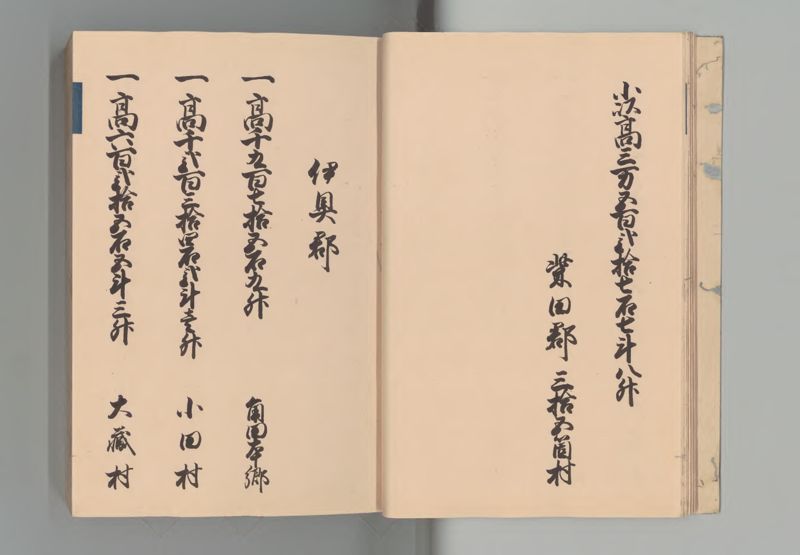 小以高三万五百弐拾七石七斗八升
柴田郡 三拾五箇村
伊具郡
一高千五百七拾五石九升 角田本郷
一高千弐百三拾四石弐斗壱升 小田村
一高六百弐拾五石五斗三升 大蔵村